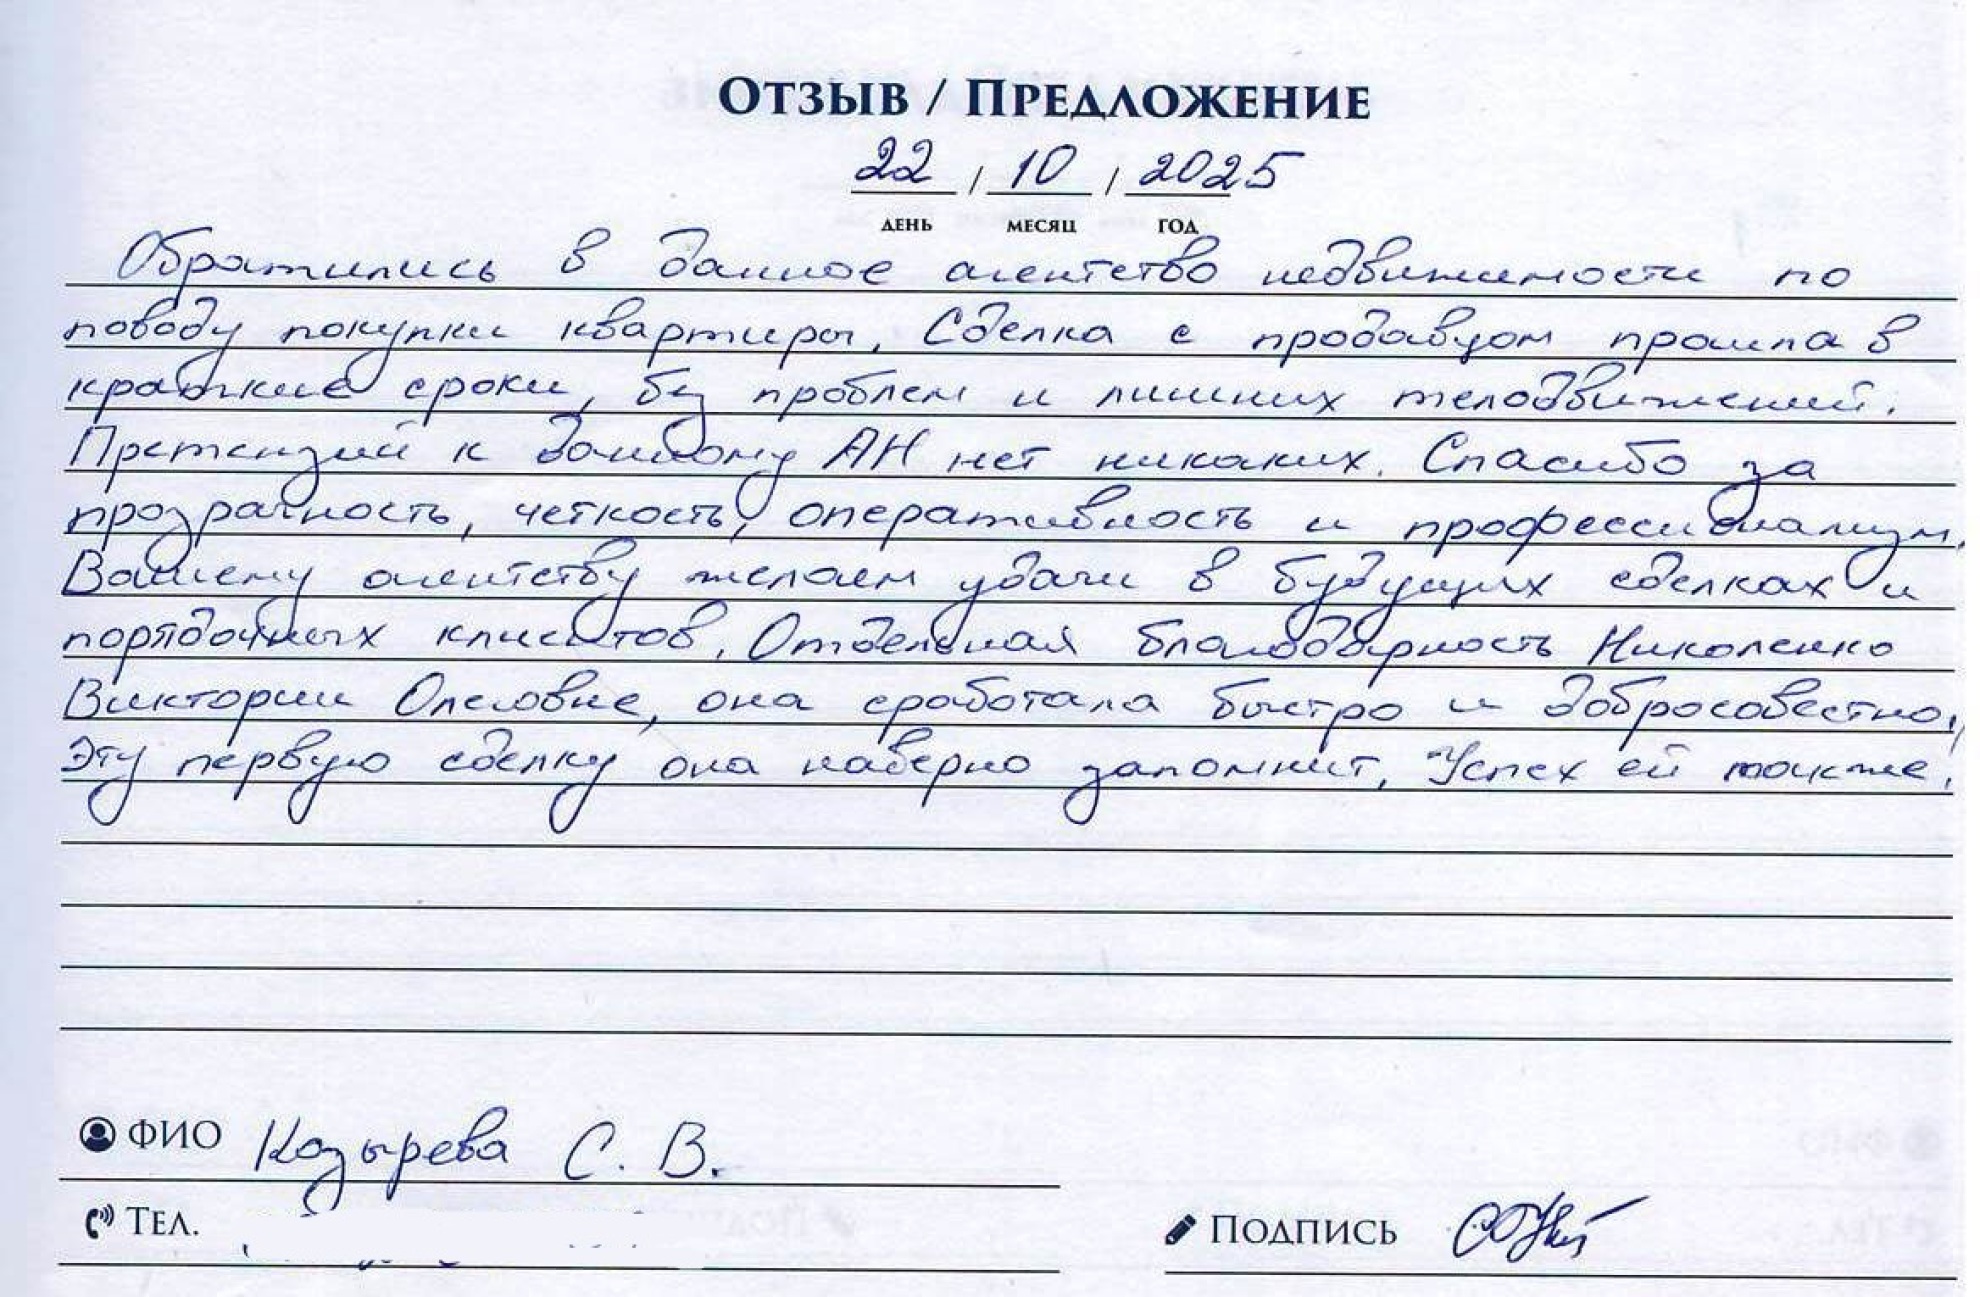 Отзыв / Предложение
22 / 10 / 2025
день месяц год
Обратились в данное агентство недвижимости по
поводу покупки квартиры. Сделка с продавцом прошла в
краткие сроки, без проблем и лишних телодвижений.
Претензий к данному АН нет никаких. Спасибо за
прозрачность, четкость, оперативность и профессионализм.
Вашему агентству желаем удачи в будущих сделках и
порядочных клиентов. Отдельная благодарность Николенко
Виктории Олеговне, она сработала быстро и добросовестно,
Эту первую сделку она наверно запомнит. Успех ей также.
ФИО Козырева С. В.
Тел.
Подпись